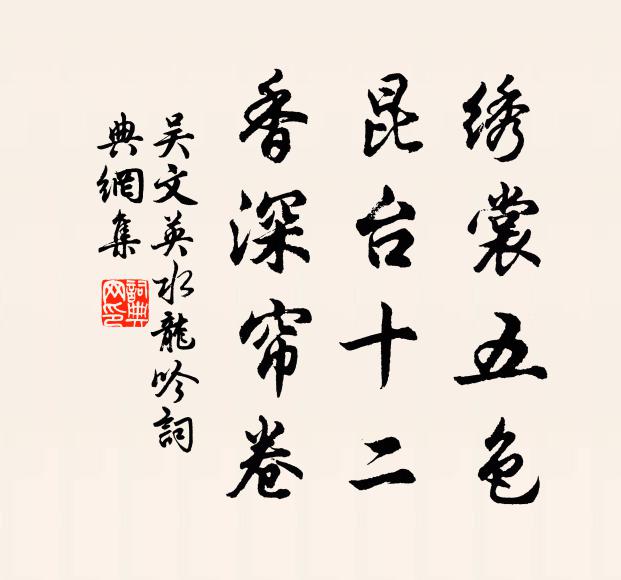 绣裳五色
昆台十二
香深帘卷
吴文英水龍吟詞
典網集
詞典
网印